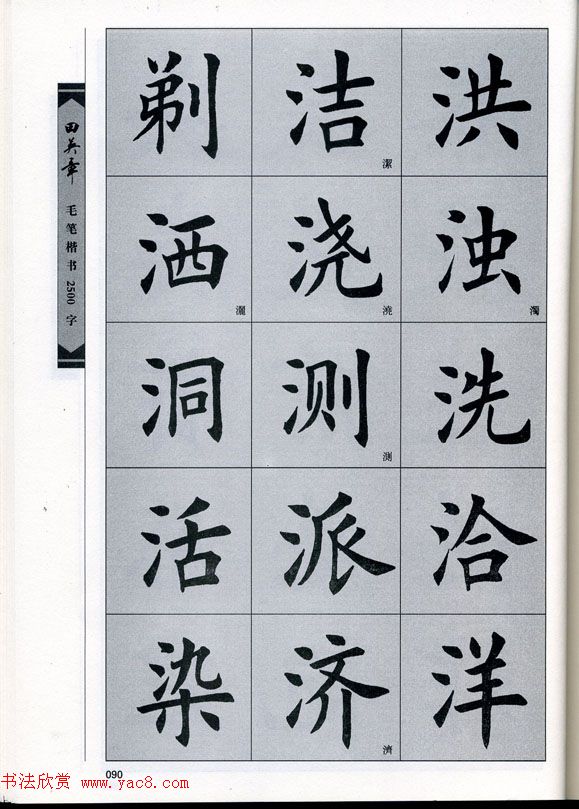 田英章 毛笔楷书 2500 字
剃 洁 洪
潔
洒 浇 浊
灑 澆 濁
洞 测 洗
測
活 派 洽
染 济 洋
濟
090
书法欣赏 www.yac8.com